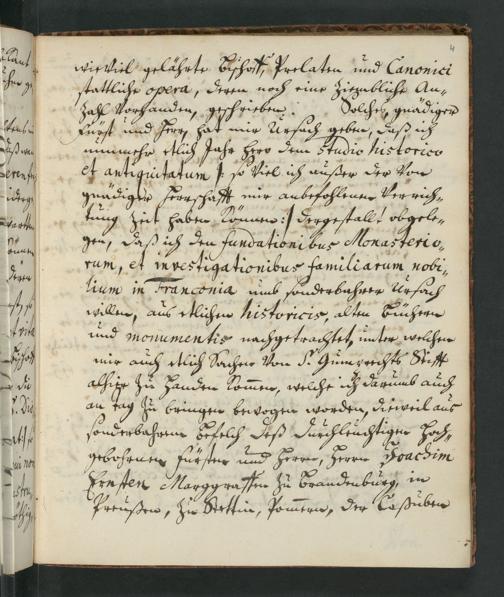 4
wie viel gelährte Bischoff, Prelaten und Canonici
stattliche opera, deren noch eine ziembliche An-
zahl vorhanden, geschrieben. Solches, gnädiger
Fürst und Herr, hat mir Ursach geben, daß ich
nunmehr etlich Jahr hero dem studio historico
et antiquitatum /: so viel ich außer der von
gnädiger Herrschafft mir anbefohlenen Verrich-
tung Zeit haben können :/ dergestalt obgele-
gen, daß ich den fundationibus Monasterio-
rum, et investigationibus familiarum nobi-
lium in Franconia umb sonderbahrer Ursach
willen, aus etlichen historicis, alten Büchern
und monumentis nachgetrachtet, unter welchen
mir auch etlich Sachen von St. Gumprechts Stifft
alhier zu Handen kommen, welche ich darumb auch
an tag zu bringen bewogen worden, dieweil aus
sonderbahrem Befelch deß durchleuchtigen Hoch-
gebohrnen Fürsten und Herrn, Herrn Joachim
Ernsten Marggraffen zu Brandenburg, in
Preußen, zu Stettin, Pommern, der Caßuben